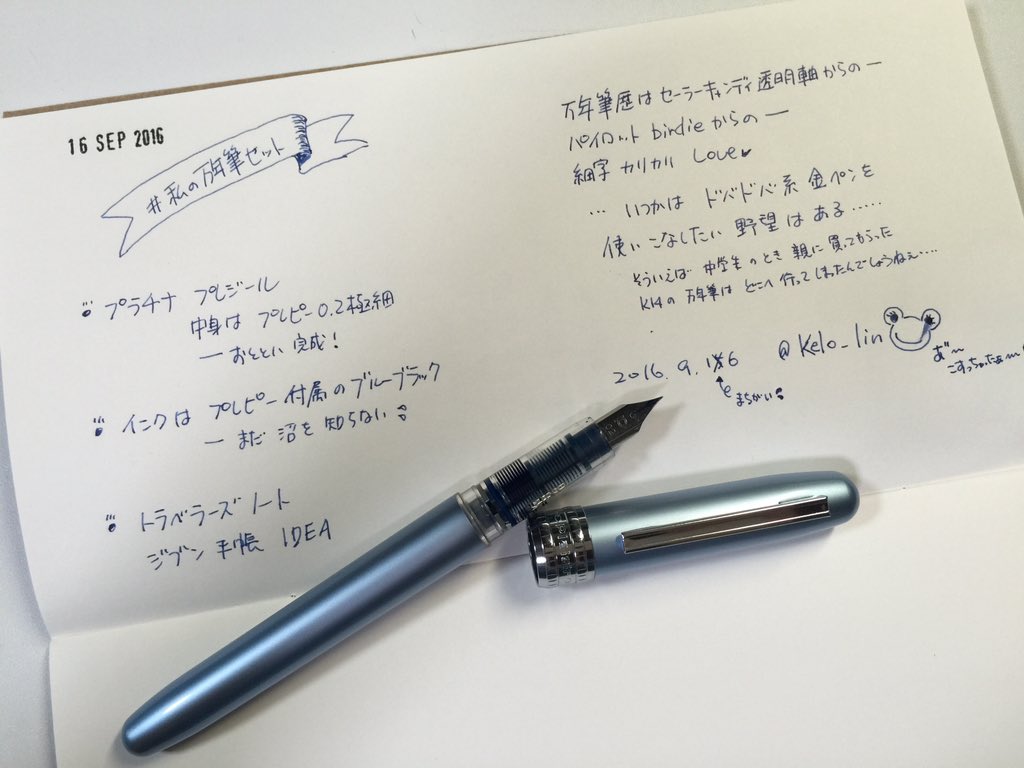 16 SEP 2016
#私の万年筆セット
プラチナ プレジール
中身は プレピー0.2極細
— おととい 完成!
インクは プレピー付属のブルーブラック
— まだ 沼を 知らない
トラベラーズノート
ジブン手帳 IDEA
万年筆歴はセーラーキャンディ透明軸からの—
パイロット birdieからの—
細字カリカリ Love♥
… いつかは ドバドバ系 金ペンを
使いこなしたい 野望は ある……
そういえば 中学生のとき 親に 買ってもらった
の 万年筆は どこへ 行って しまったんでしょうねぇ….
2016.9.16 @kelo_lin
まちがい
あ゛〜
こすっちゃったぁ〜